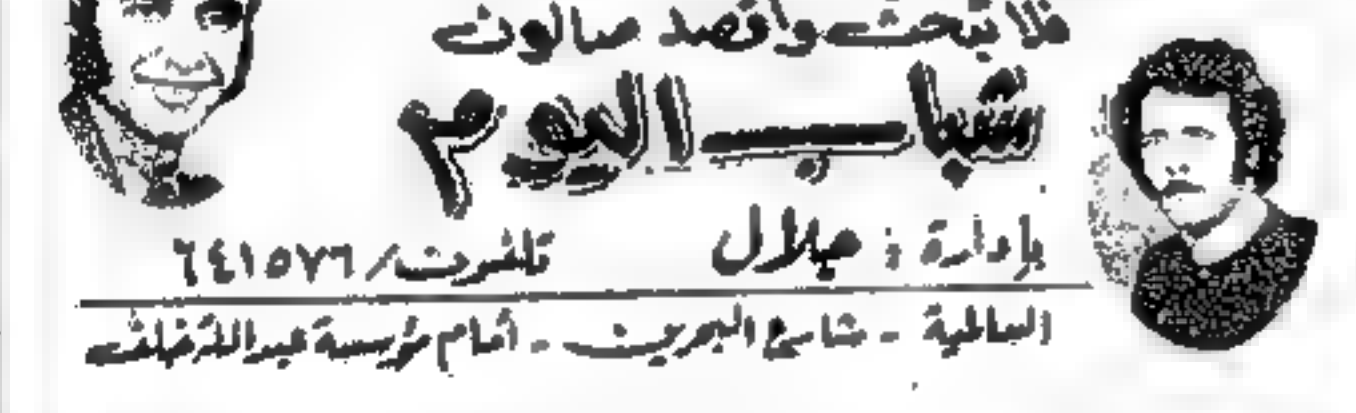 فلا تبحث واقصد صالون
شباب اليوم
بإدارة : هلال تلفون/ ٦٤١٥٧٦
السالمية - شارع البحرين - أمام مؤسسة عبدالله خلف